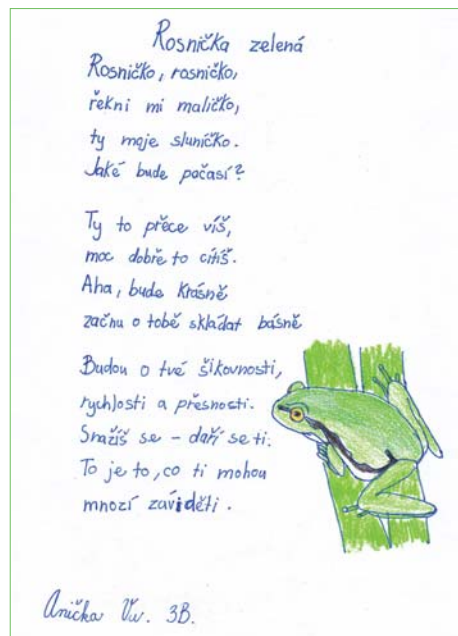 Rosnička zelená
Rosničko, rosničko,
řekni mi maličko,
ty moje sluníčko.
Jaké bude počasí?
Ty to přece víš,
moc dobře to cítíš.
Aha, bude krásně
začnu o tobě skládat básně
Budou o tvé šikovnosti,
rychlosti a přesnosti.
Snažíš se - daří se ti.
To je to, co ti mohou
mnozí záviděti.
Anička 3B.